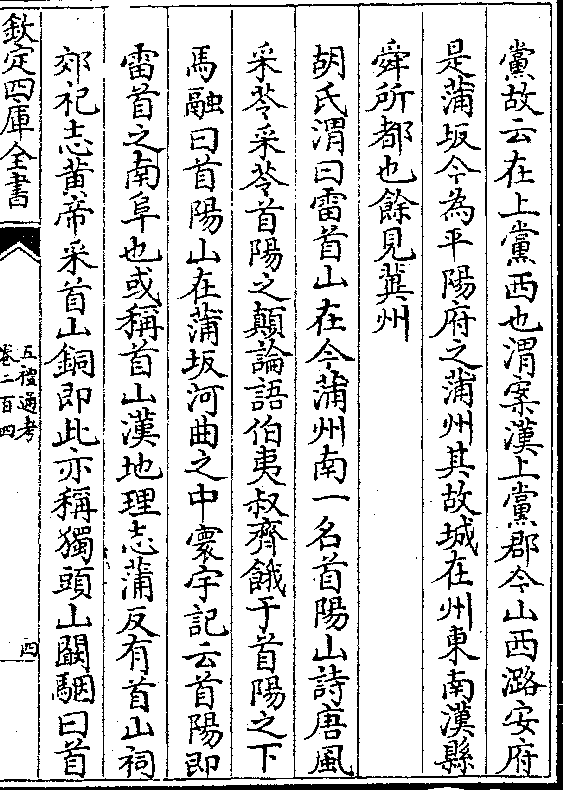 黨故云在上黨西也渭案漢上黨郡今山西潞安府
是蒲坂今為平陽府之蒲州其故城在州東南漢縣
舜所都也餘見冀州
胡氏渭曰雷首山在今蒲州南一名首陽山詩唐風
采苓采苓首陽之顛論語伯夷叔齊餓于首陽之下
馬融曰首陽山在蒲坂河曲之中寰宇記云首陽即
雷首之南阜也或稱首山漢地理志蒲反有首山祠
郊祀志黄帝采首山銅即此亦稱獨頭山闞駰曰首
欽定四庫全書
五禮通考
卷二百四
四